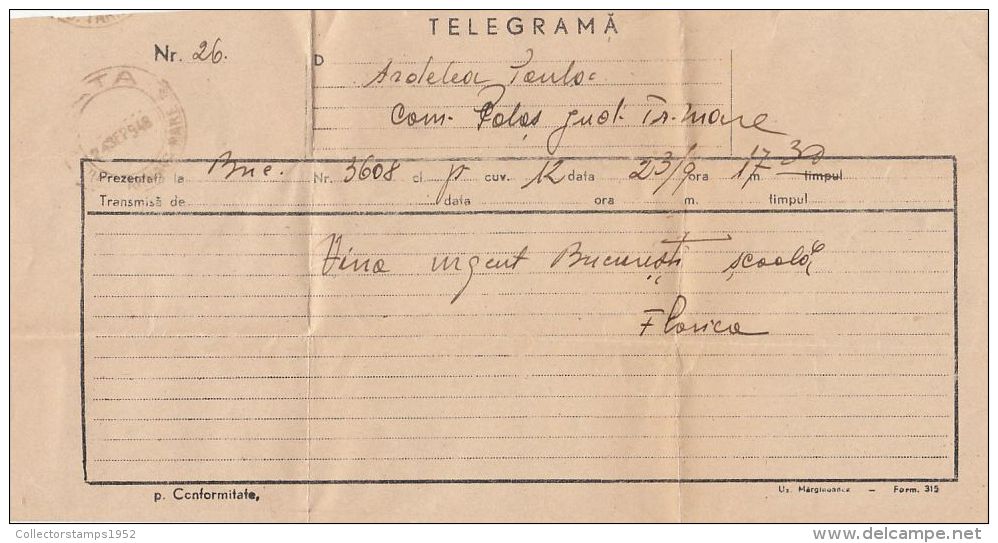 TELEGRAMĂ
Nr. 26.
D Ardelea
Com. jud. Tr. Mare
Prezentată la Buc. Nr. 3608 cl. p cuv. 12 data 23/9 ora 17 m. 30 timpul
Transmisă de data ora m. timpul
Vino urgent București școală
Florica
p. Conformitate,
Uz. Mărgineanca — Form. 315
Collectorstamps1952
delcampe.net